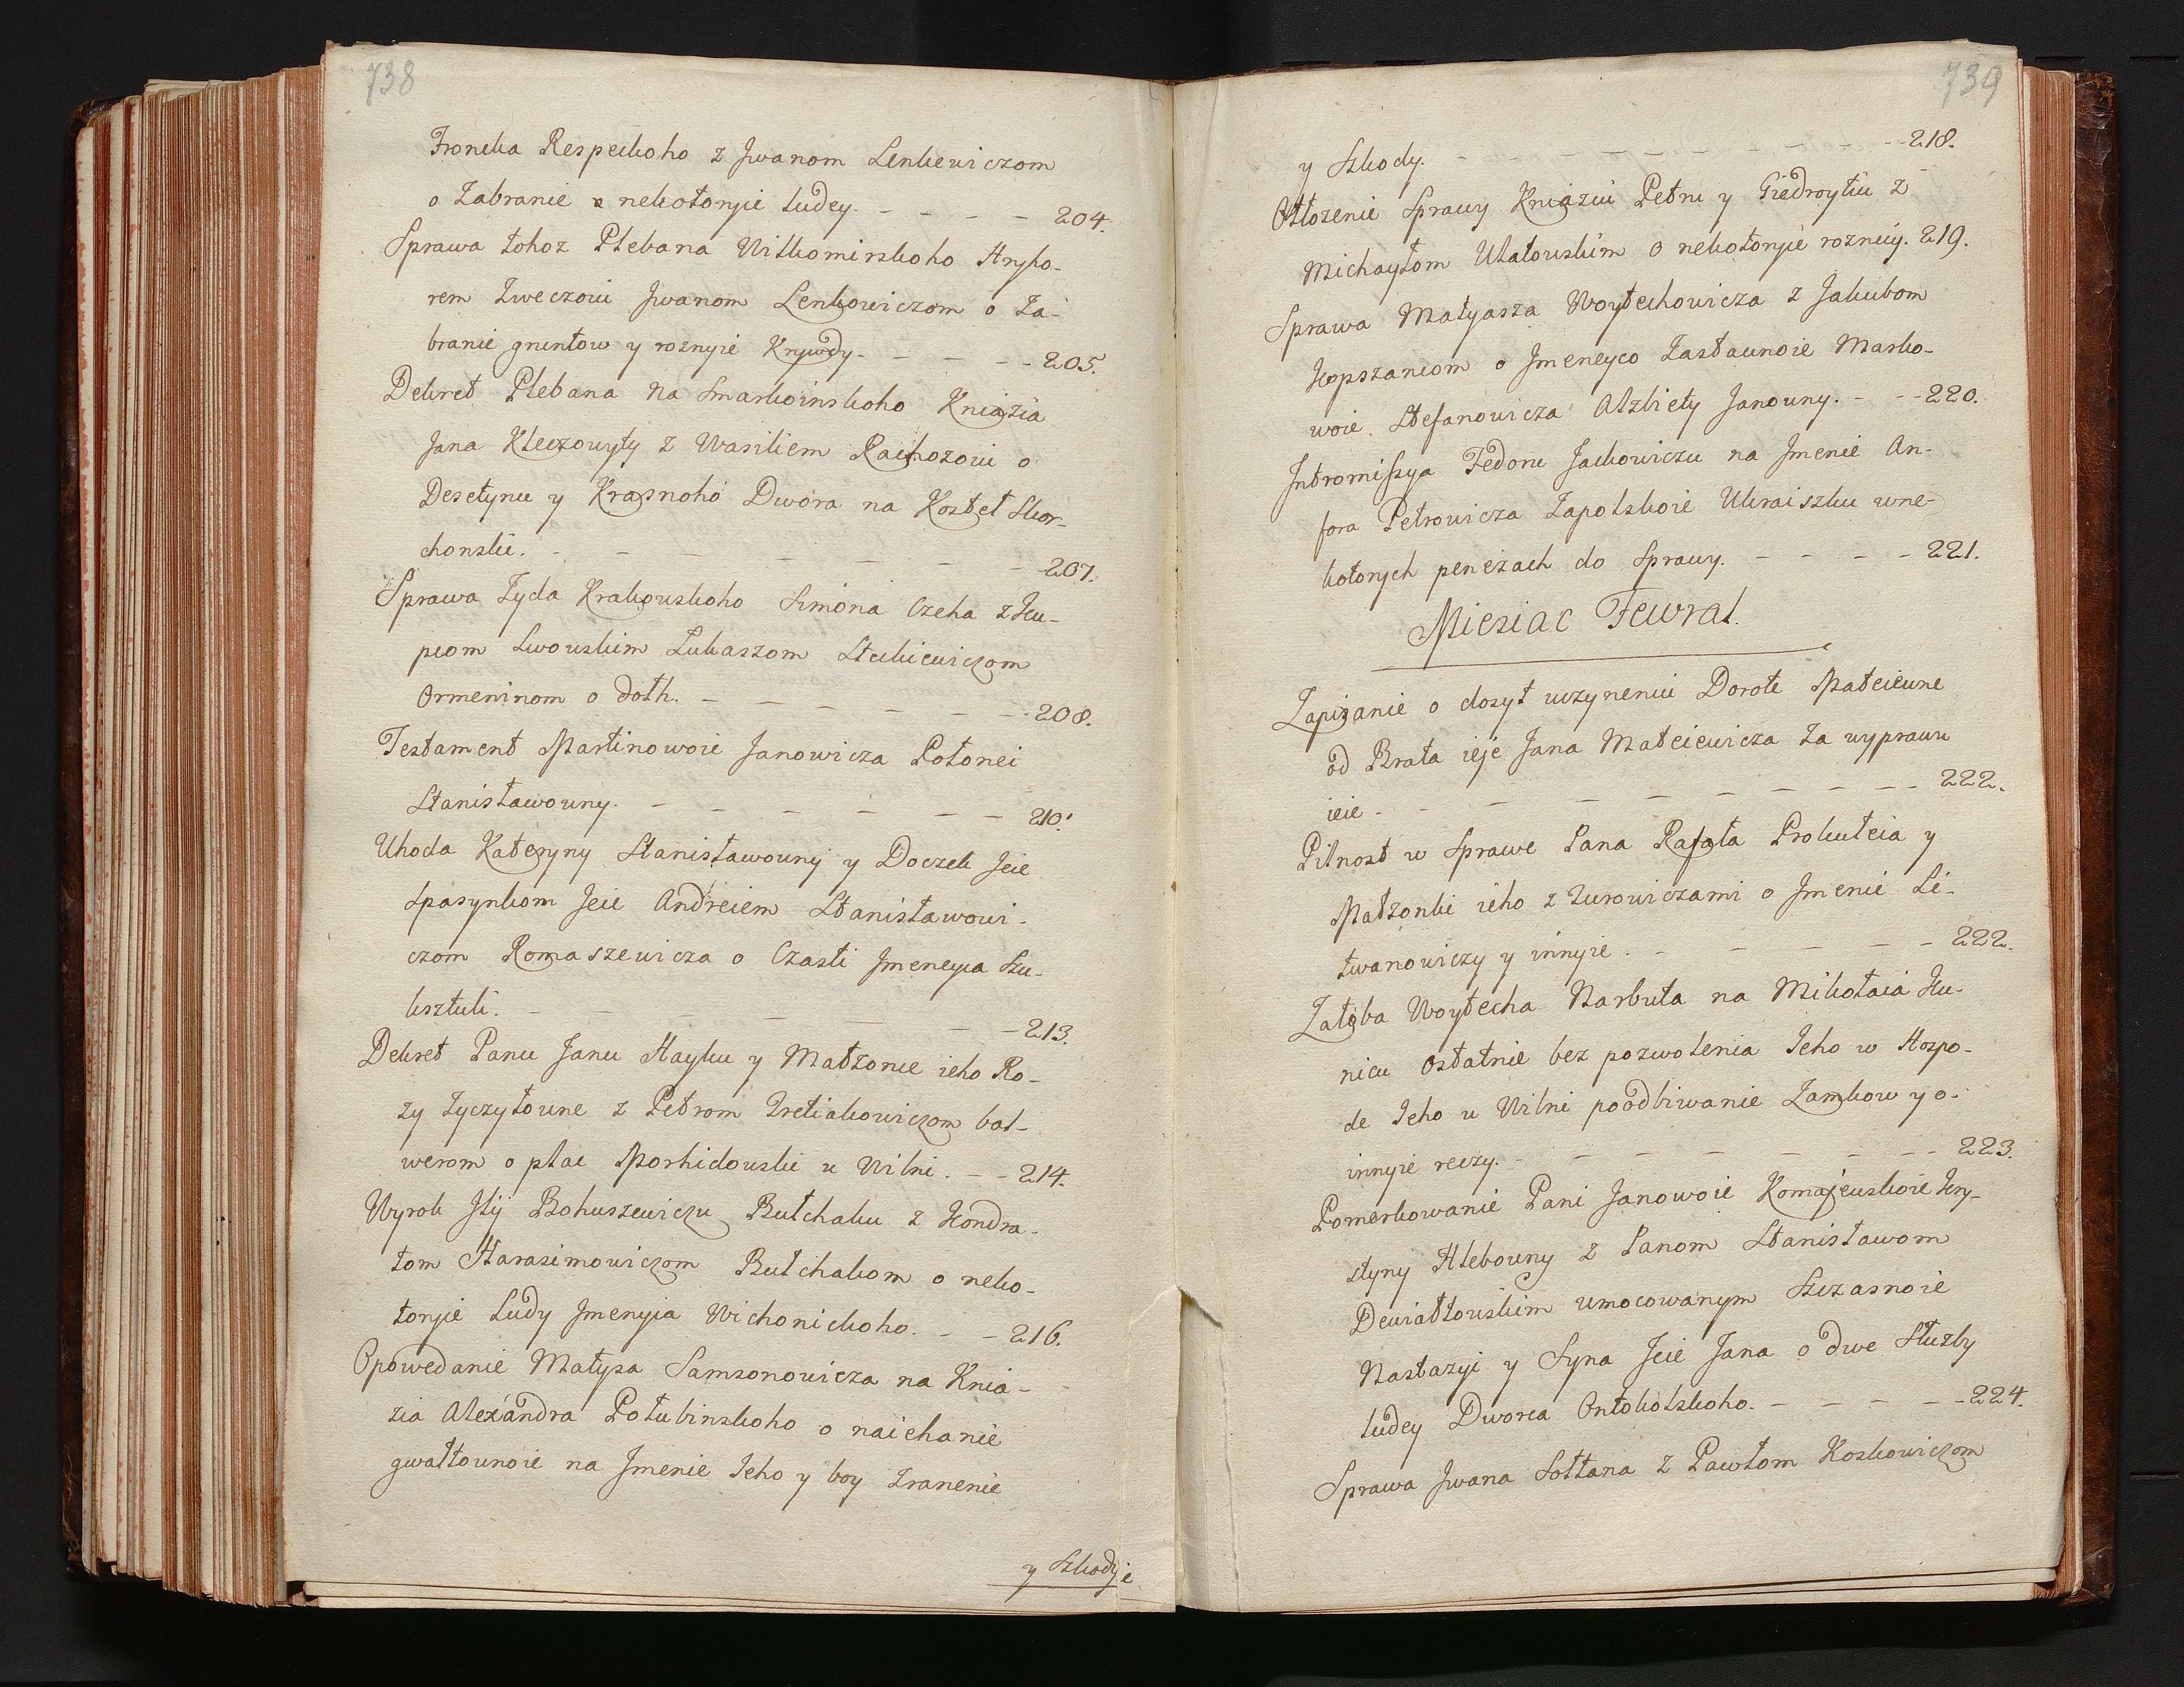 738
Froncka Respeckoho z Jwanom Lenkewiczom
o Zabranie nekotoryie ludey. - - - - - 204.
Sprawa tohoz Plebana Wilkomirskoho Hryho-
rem Zweczowi Jwanom Lenkowiczom o Za-
branie gruntow y roznyie Krywdy. - - - - 205.
Dekret Plebana Na Smarkoinskoho Kniazia
Jana Kleczowyty z Wasiliem Raihozowi o
Desetynu y Krasnoho Dwora na Kostel Skor-
chonski. - - - - - - 207.
Sprawa Zyda Krakouskoho Simona Czeha z Ku-
pcom Lwouskim Lukaszom Steckiewiczom
Ormeninom o dolh. - - - - - - 208.
Testament Martinowoie Janowicza Polonei
Stanislawouny. - - - - - - 210.
Uhoda Kateryny Stanislawouny y Doczek Jeie
Spasynkom Jeie Andreiem Stanislawowi-
czom Romaszewicza o Czasti Jmenyia Szu-
ksztuli. - - - - - - 213.
Dekret Panu Janu Hayku y Malzonce ieho Ro-
zy Zyczytoune z Petrom Tretiakowiczom bal-
werom o plac Morhidouski u Wilni. - - 214.
Wyrok Jlij Bohuszewiczu Bulchaku z Kondra-
tom Harasimowiczom Bulchakom o neko-
toryie Ludy Jmenyia Wichonickoho. - - 216.
Opowedanie Matysa Samsonowicza na Knia-
zia Alexandra Polubinskoho o naiehanie
gwaltounoie na Jmenie Jeho y boy Zranenie
y Szkodyie
739
y Szkody. - - - - - - - - - 218.
Otlozenie Sprawy Kniaziu Petru y Giedroytiu z
Michaylom Ulalouskim o nekotoryie rozniey. 219.
Sprawa Matyasza Woytechowicza z Jakubom
Kopszaniom o Jmeneyco Zastaunoie Marko-
woie Stefanowicza Alzbiety Janouny. - - 220.
Intromissya Fedoru Jackowiczu na Jmenie An-
fora Petrowicza Zapolskoie Ukraiszku wne-
kotorych penezach do Sprawy. - - - - 221.
Miesiac Fewral.
Zapisanie o dosyt uczyneniu Dorote Mateieune
od Brata ieje Jana Mateiewicza Za wyprawu
ieie - - - - - - - - 222.
Pilnost w Sprawe Pana Rafala Prokuleia y
Malzonki ieho z Zurowiczami o Jmenie Li-
twanowiczy y innyie. - - - - - 222.
Zaloba Woytecha Narbuta na Mikolaia Ku-
nicu Ostatnie bez pozwolenia Jeho w Hospo-
de Jeho u Wilni poodbiwanie Zamkow y o-
innyie reczy. - - - - - - - 223.
Pomerkowanie Pani Janowoie Komajeuskoie Kry-
styny Hlebouny z Panom Stanislawom
Dewialtouskim umocowanym Szczasnoie
Nastazyi y Syna Jeie Jana o dwe Sluzby
ludey Dworca Ontokolskoho. - - - - - 224.
Sprawa Jwana Soltana z Pawlom Koskowiczom